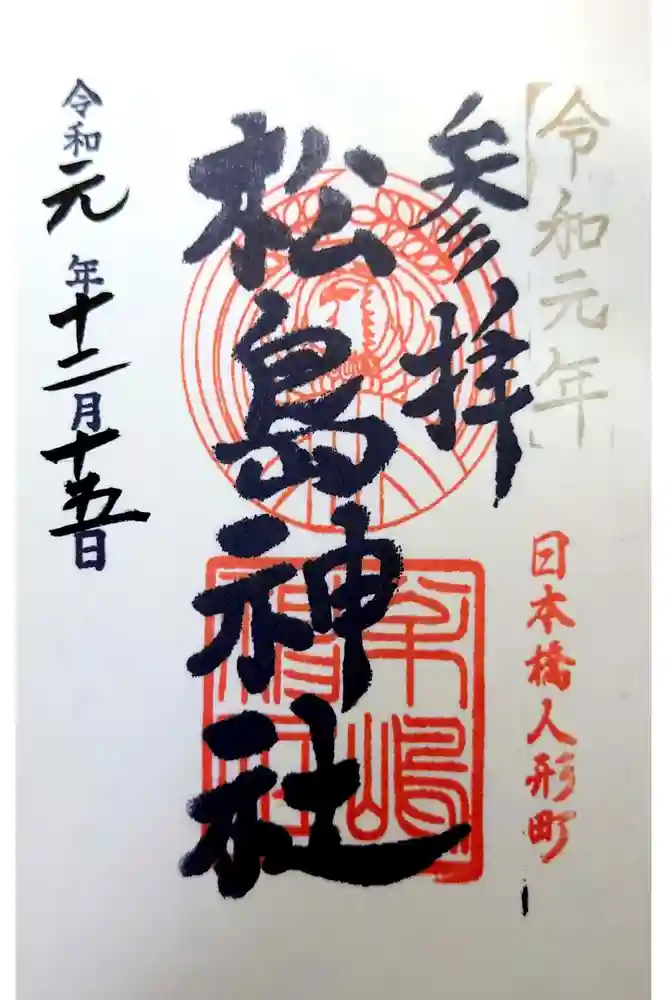 令和元年
日本橋人形町
参拝
松島神社
令和元年十二月十五日